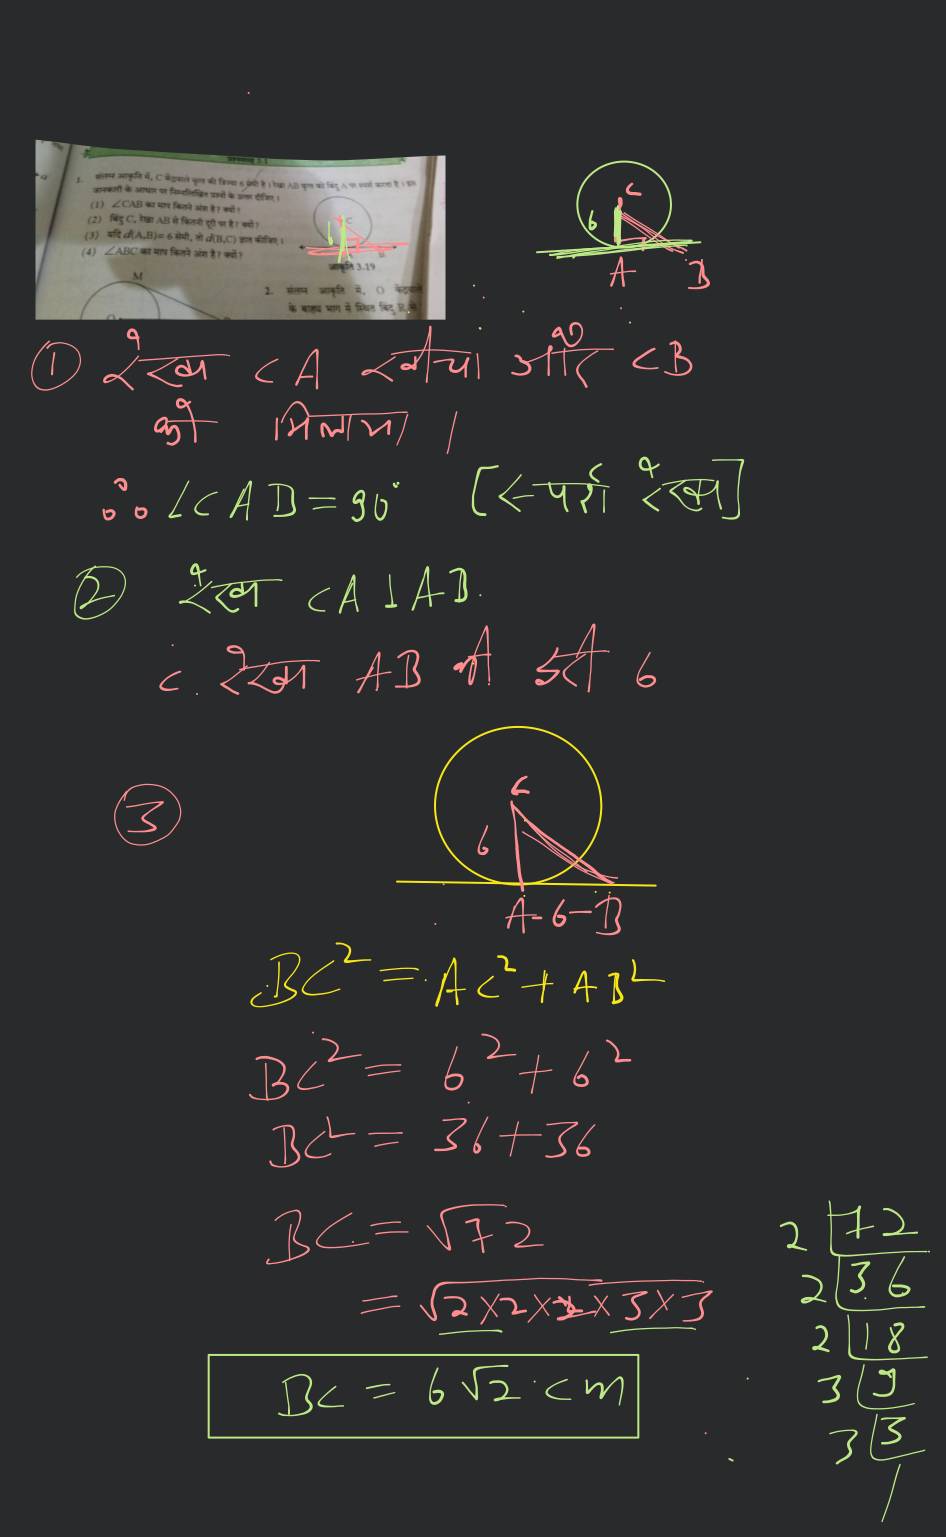 प्रश्नसंग्रह 3.1
1. संलग्न आकृति में, C केंद्रवाले वृत्त की त्रिज्या 6 सेमी है । रेखा AB वृत्त को बिंदु A पर स्पर्श करता है । इस
जानकारी के आधार पर निम्नलिखित प्रश्नों के उत्तर दीजिए ।
(1) ∠CAB का माप कितने अंश है? क्यों?
(2) बिंदु C, रेखा AB से कितनी दूरी पर है? क्यों?
(3) यदि d(A,B)= 6 सेमी, तो d(B,C) ज्ञात कीजिए ।
(4) ∠ABC का माप कितने अंश है? क्यों?
आकृति 3.19
M
2. संलग्न आकृति में, O केंद्रवाले
के बाह्य भाग में स्थित बिंदु R से
C
6
A B
① रेखा CA खींचा और CB
को मिलाया ।
∴ ∠CAB = 90° [स्पर्श रेखा]
② रेखा CA ⊥ AB.
C. रेखा AB की दूरी 6
③
C
6
A-6-B
BC² = AC² + AB²
BC² = 6² + 6²
BC² = 36+36
BC = √72
= √2×2×2×3×3
BC = 6√2 cm
2 72
2 36
2 18
3 9
3 3
1